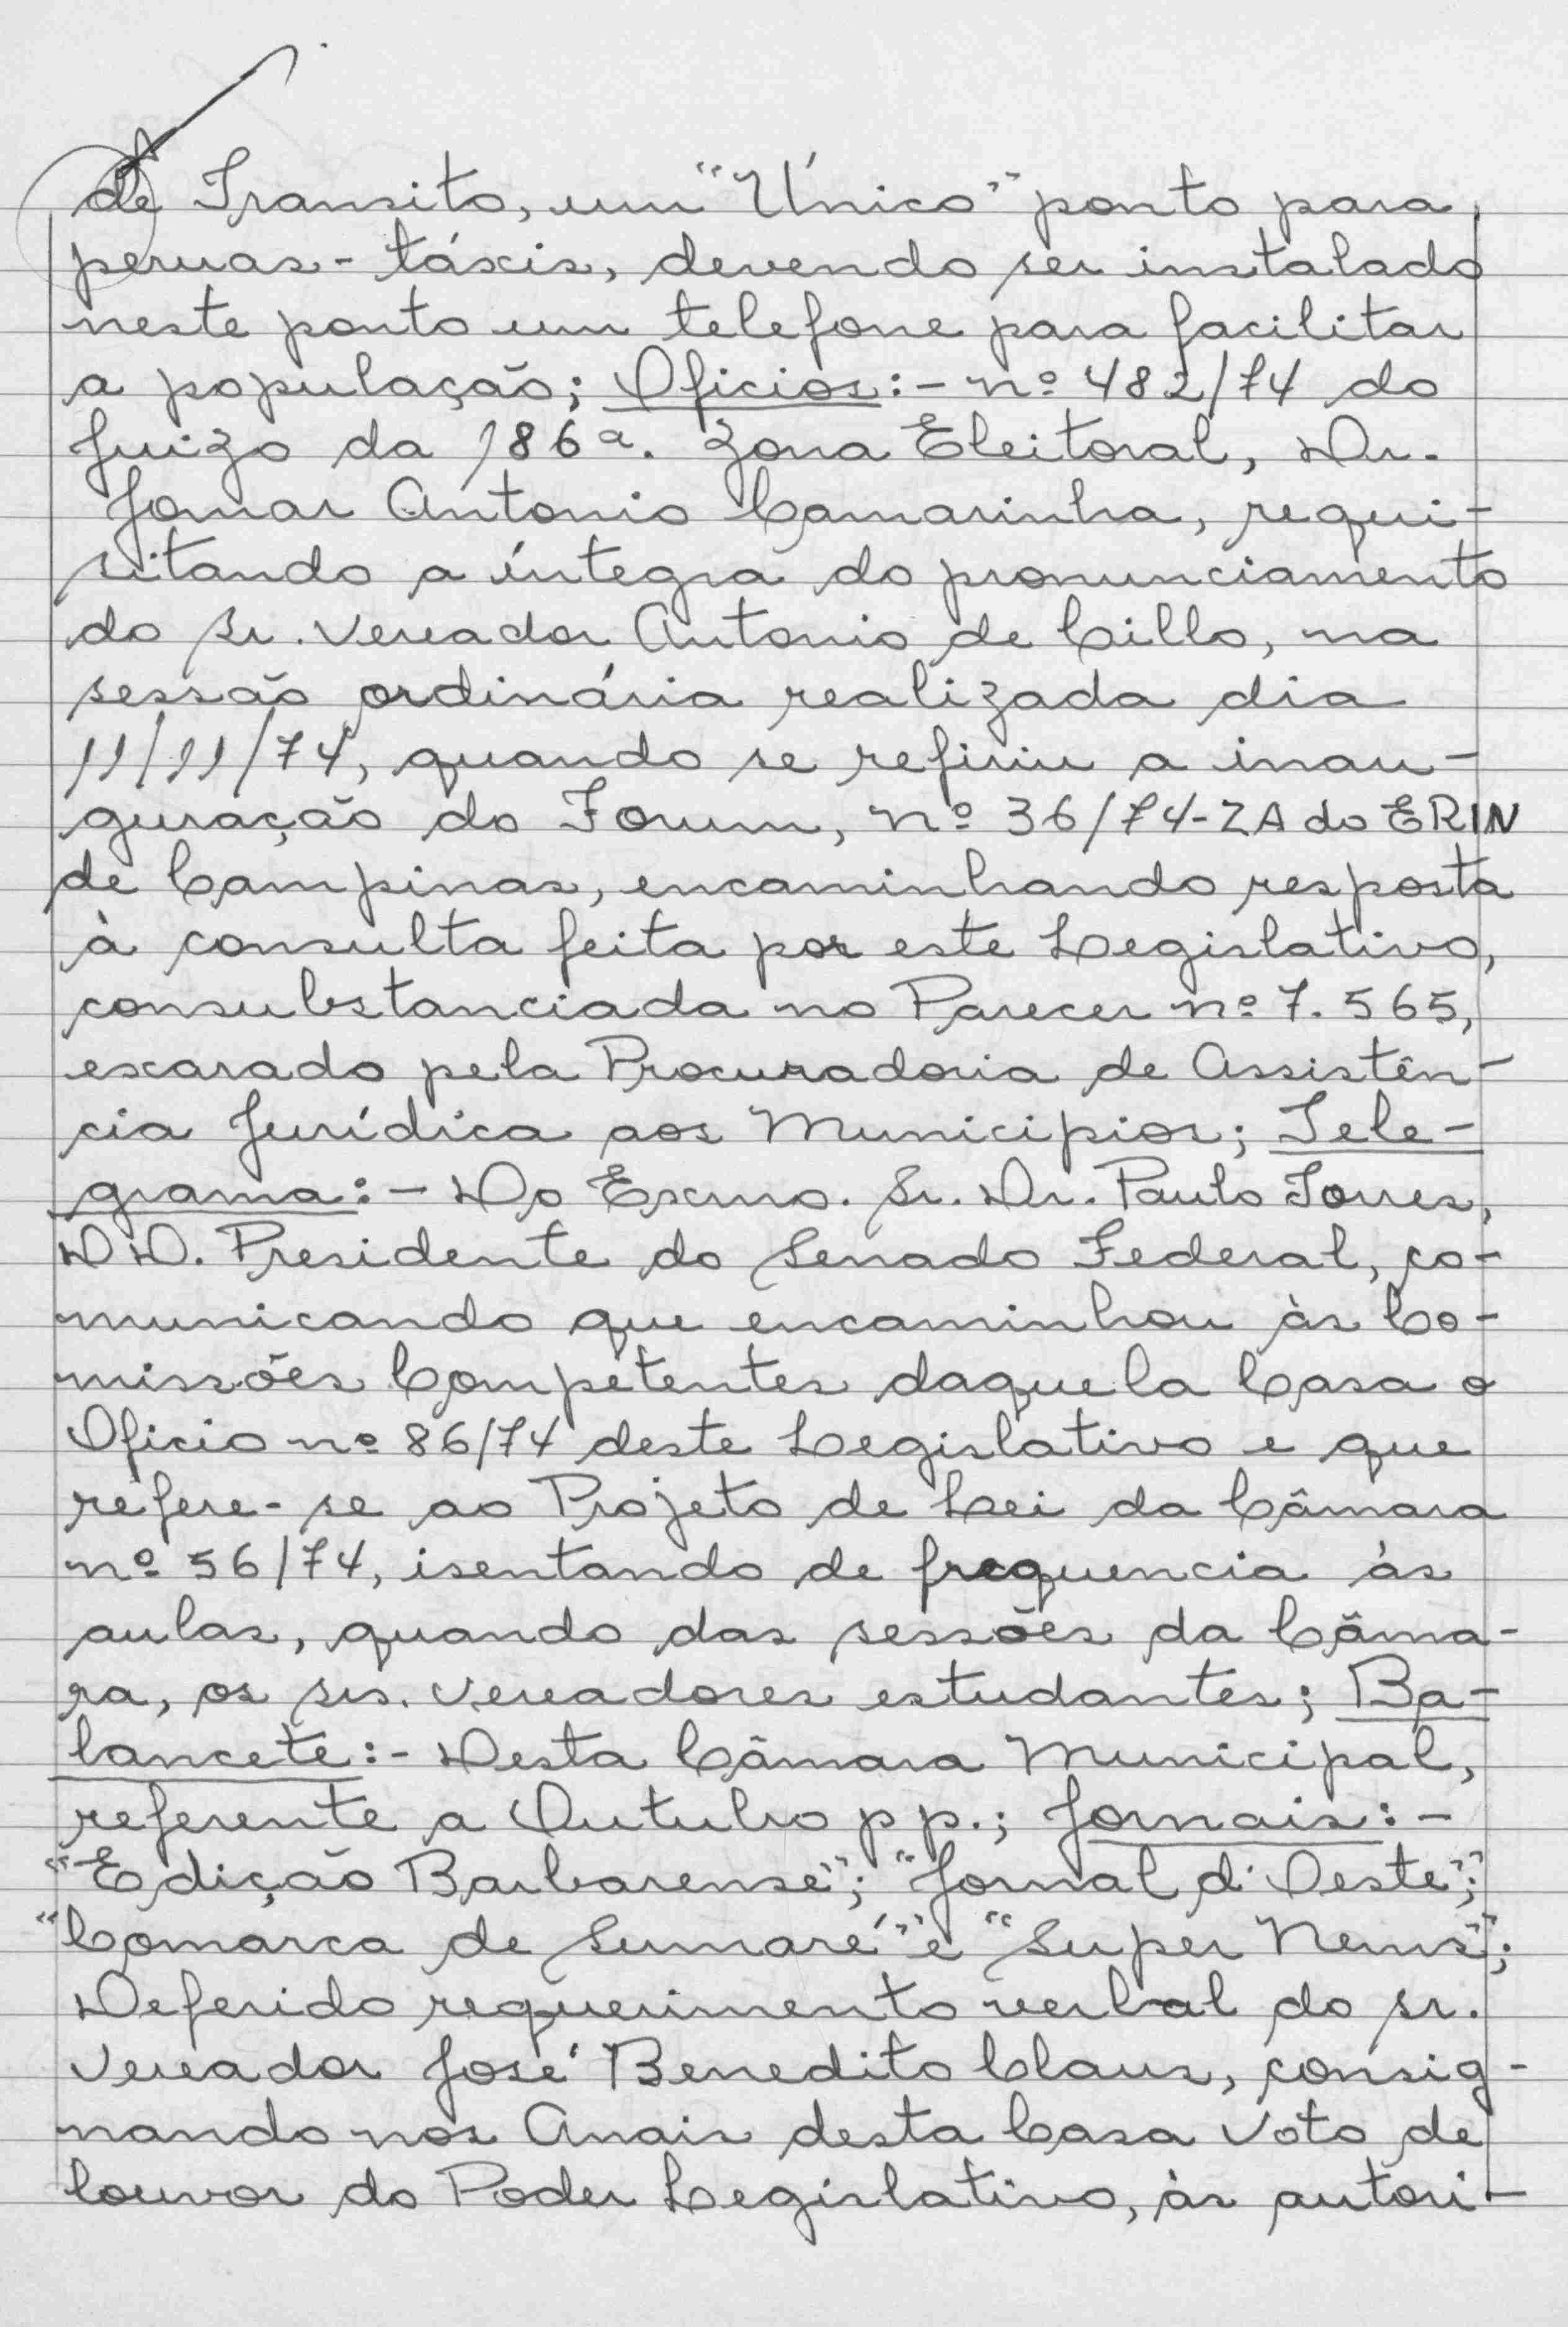 de Transito, um "Único" ponto para
peruas-táxis, devendo ser instalado
neste ponto um telefone para facilitar
a população; Oficios:- nº 482/74 do
Juizo da 186ª. Zona Eleitoral, Dr.
Jomar Antonio Camarinha, requi-
sitando a íntegra do pronunciamento
do Sr. Vereador Antonio de Cillo, na
sessão ordinária realizada dia
11/11/74, quando se refiriu a inau-
guração do Forum, nº 36/74-ZA do ERIN
de Campinas, encaminhando resposta
à consulta feita por este Legislativo,
consubstanciada no Parecer nº 7.565,
exarado pela Procuradoria de Assistên-
cia Jurídica aos Municipios; Tele-
grama:- Do Exmo. Sr. Dr. Paulo Torres,
DD. Presidente do Senado Federal, co-
municando que encaminhou às Co-
missões Competentes daquela Casa o
Oficio nº 86/74 deste Legislativo e que
refere-se ao Projeto de Lei da Câmara
nº 56/74, isentando de frequencia às
aulas, quando das sessões da Câma-
ra, os srs. Vereadores estudantes; Ba-
lancete:- Desta Câmara Municipal,
referente a Outubro pp.; Jornais:-
"Edição Barbarense"; "Jornal d'Oeste";
"Comarca de Sumaré" e "Super News";
Deferido requerimento verbal do sr.
Vereador José Benedito Claus, consig-
nando nos Anais desta Casa Voto de
louvor do Poder Legislativo, às autori-